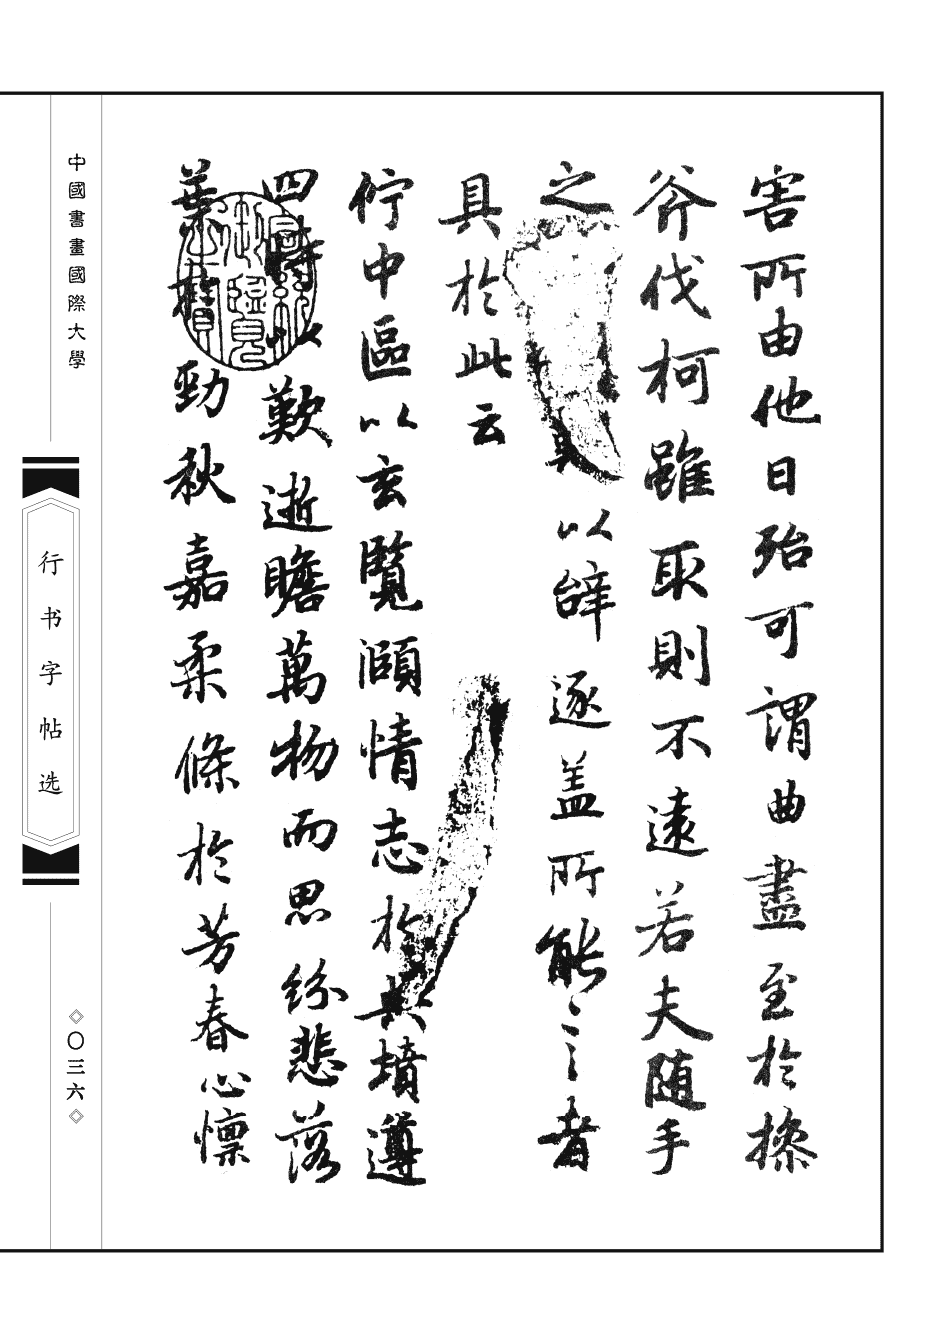 害所由他日殆可謂曲盡至於操
斧伐柯雖取則不遠若夫随手
之
以辝逐盖所能言者
具於此云
佇中區以玄覽頤情志於典墳遵
四時以歎逝瞻萬物而思紛悲落
葉於勁秋嘉柔條於芳春心懔
中國書畫國際大學
行书字帖选
〇三六